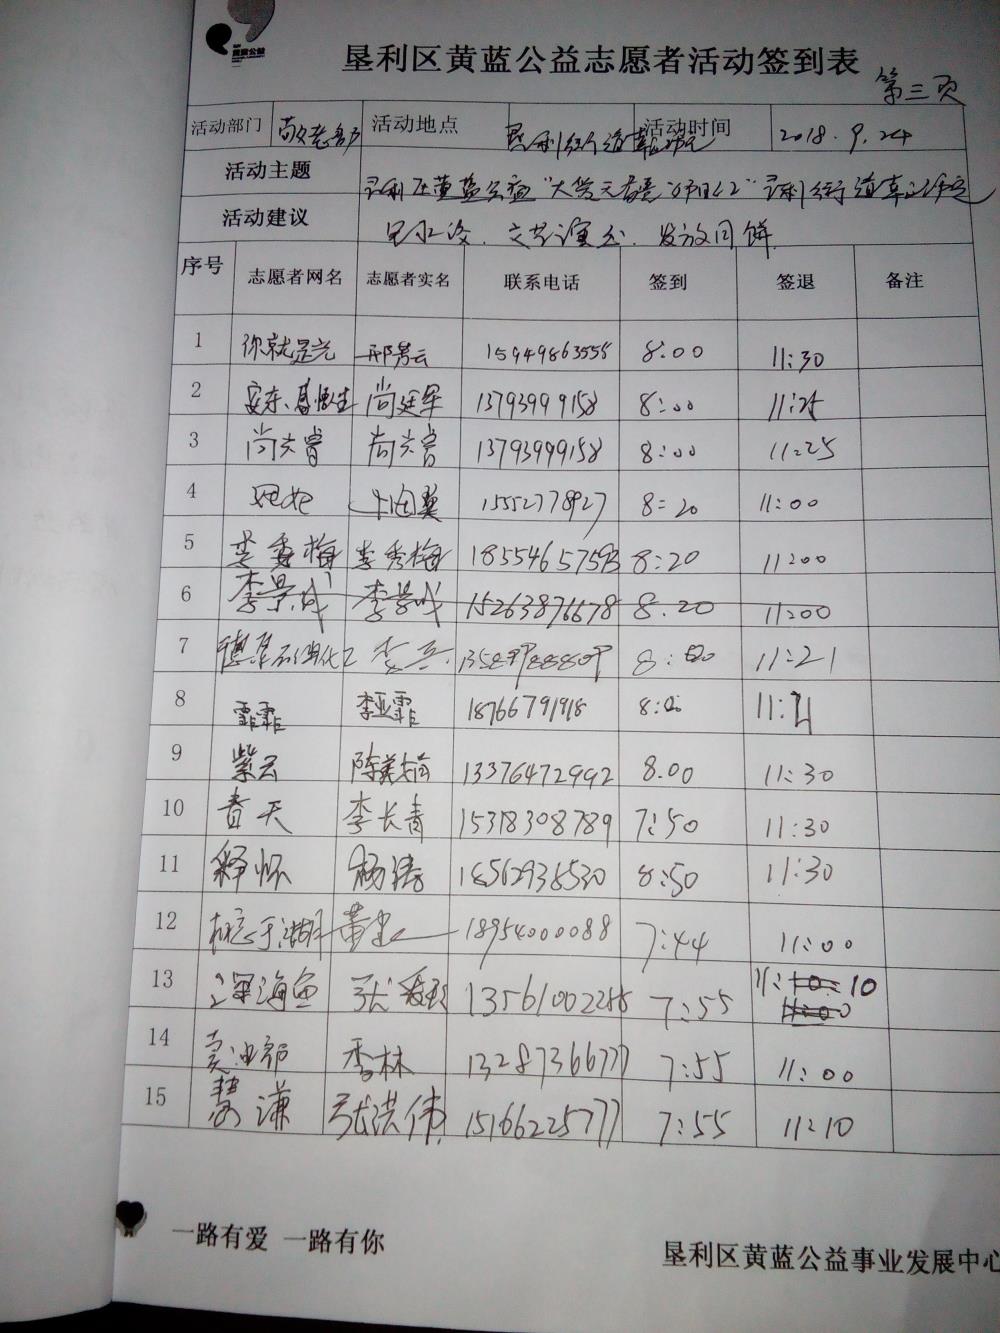 黄蓝公益
垦利区黄蓝公益志愿者活动签到表
第三页
活动部门 敬老部 活动地点 垦利街道 活动时间 2018.9.24
活动主题 垦利区黄蓝公益"大爱无言 "垦利街道
活动建议 包水饺、文艺演出、发放月饼
序号 志愿者网名 志愿者实名 联系电话 签到 签退 备注
1 你就是光 邢秀云 15949863555 8.00 11:30
2 尚廷军 13793999158 8:00 11:25
3 尚六曾 尚六曾 13793999158 8:00 11:25
4 15552778927 8:20 11:00
5 李秀梅 李秀梅 8:20 11:00
6 李景成 李景成 15263876678 8.20 11:00
7 李 11:21
8 霏霏 李亚霏 18766791918 8:00
9 紫云 陈 13376472992 8.00 11:30
10 春天 李长青 15318308789 7:50 11:30
11 释怀 杨涛 18562938530 8:50 11:30
12 相忘于湖 董 18954000088 7:44 11:00
13 深海鱼 张 7:55 11:10
14 香林 13287366777 7:55 11:00
15 慧谦 张洪伟 15166225777 7:55 11:10
一路有爱 一路有你
垦利区黄蓝公益事业发展中心